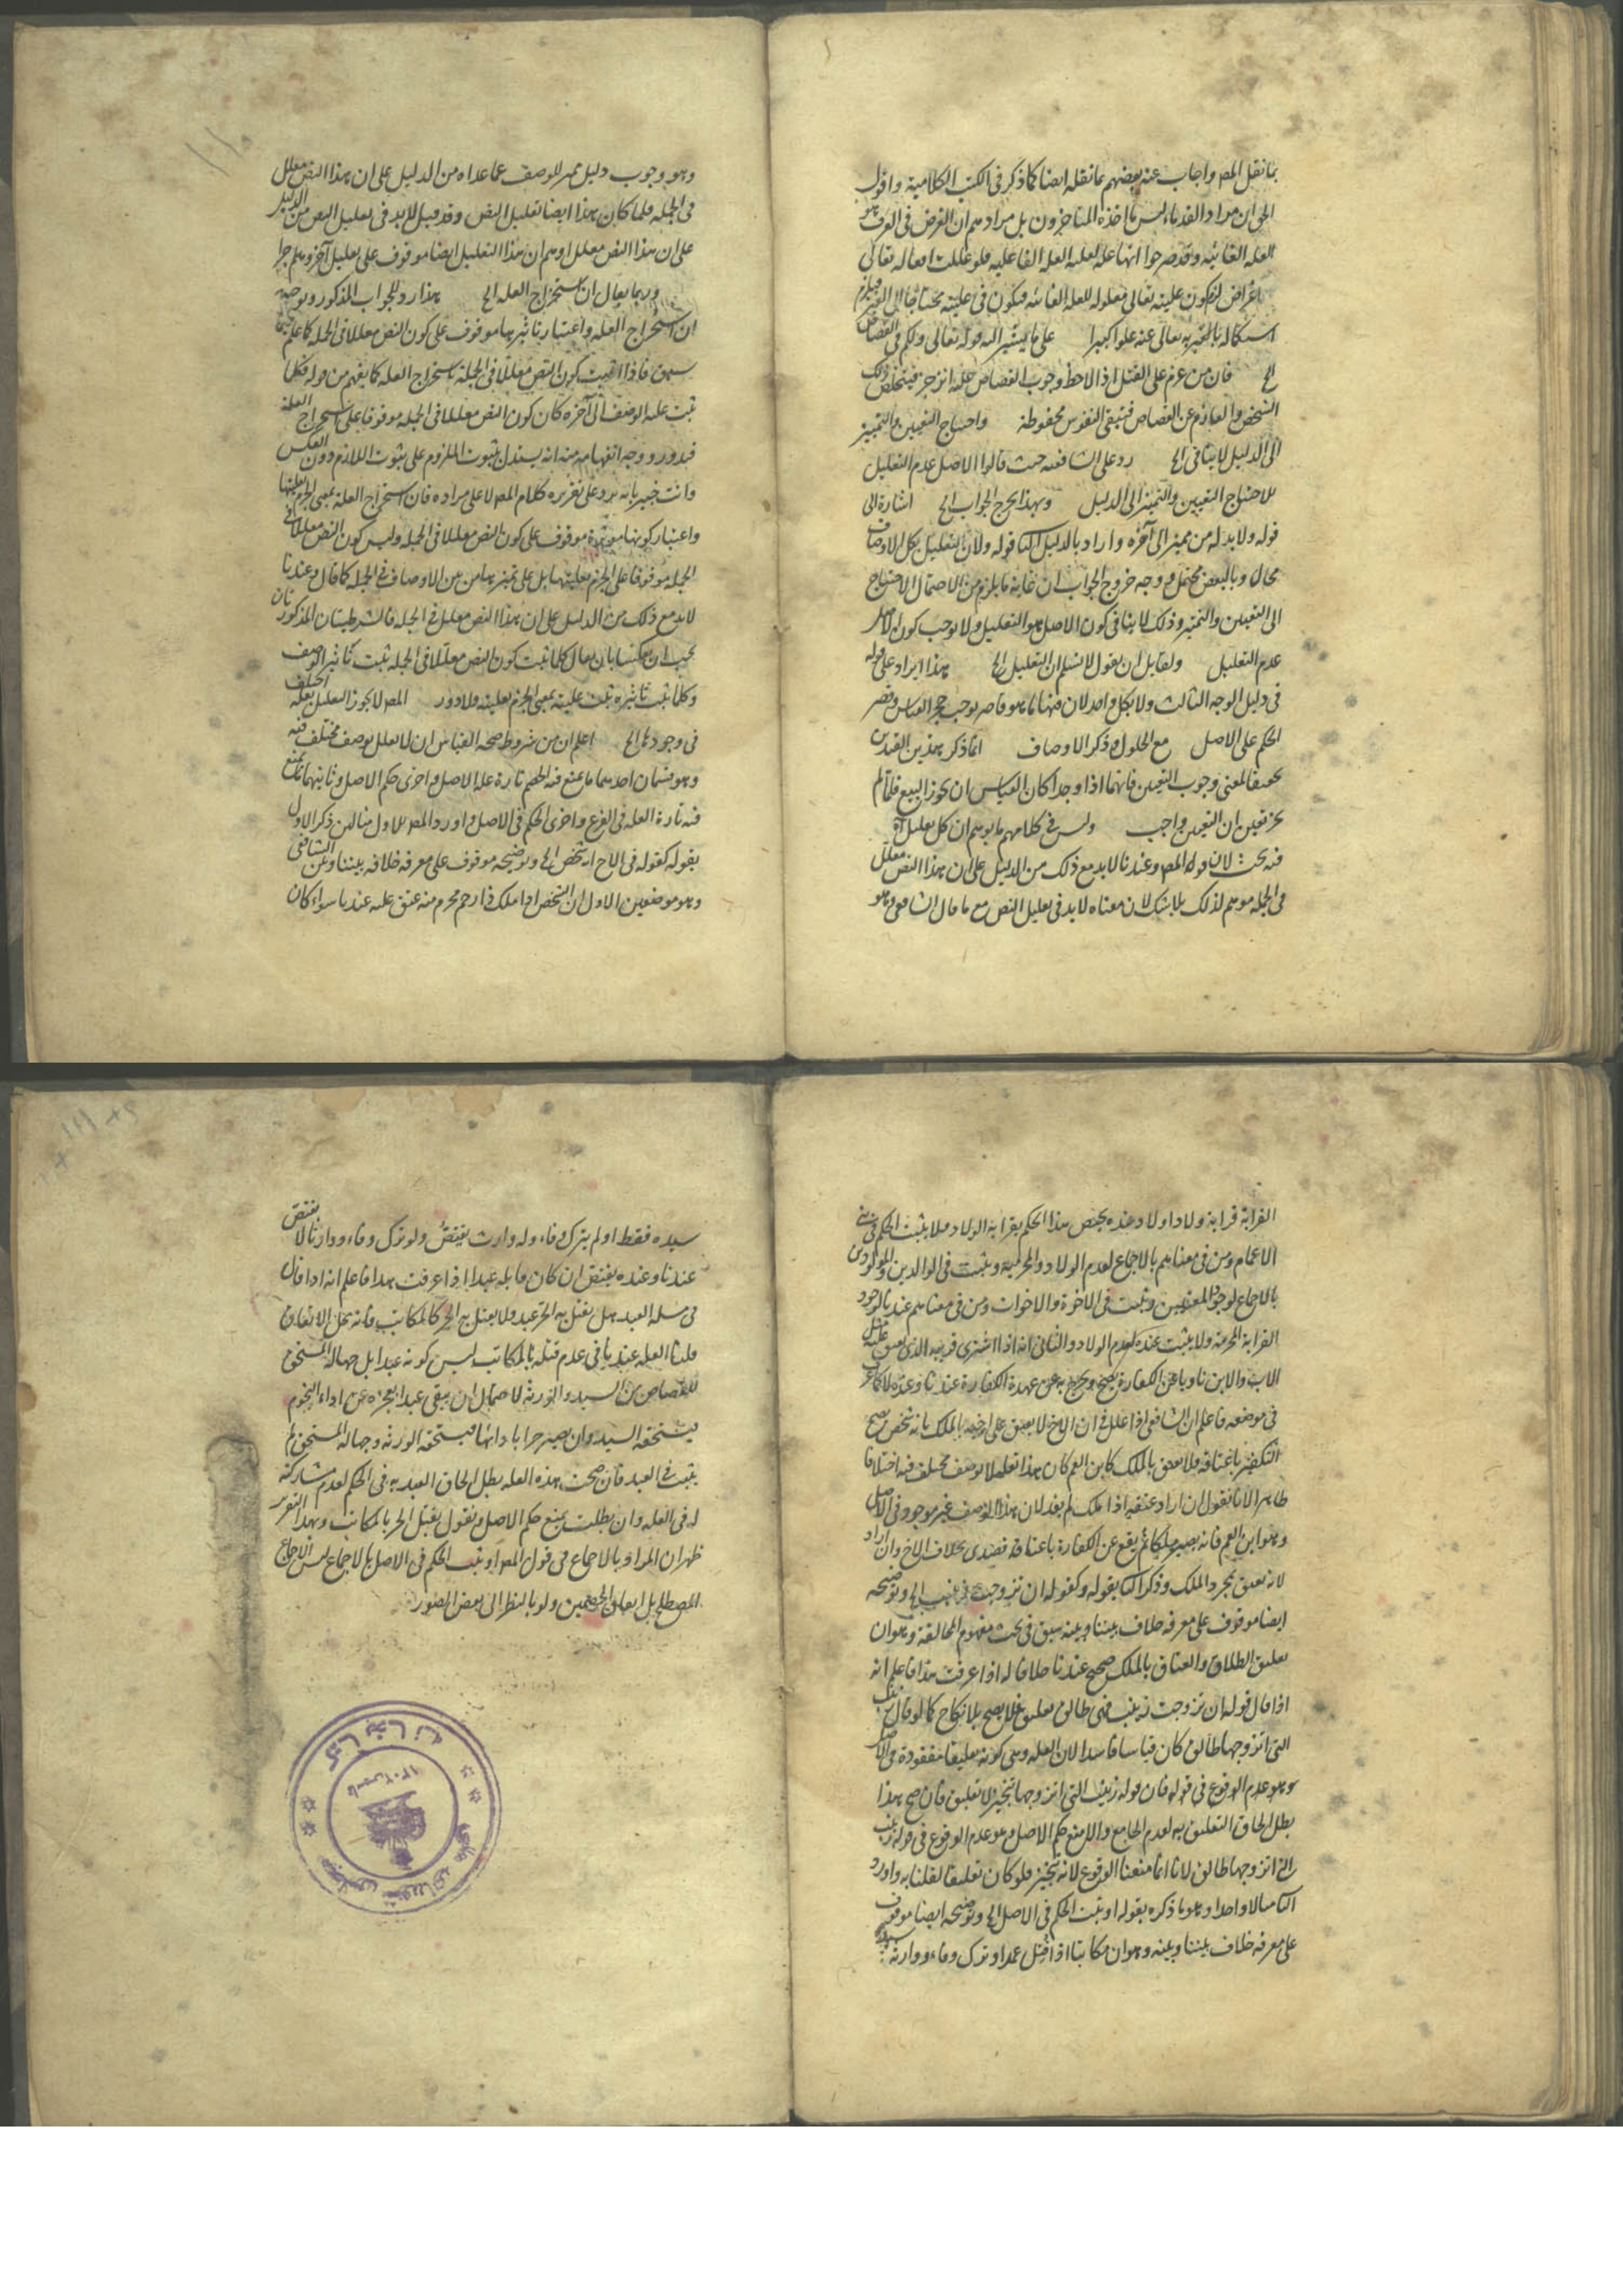 بما نقل المص واجاب عنه بعضهم بما نقله ايضا كما ذكر فى الكتب الكلامية واقول
الحق ان مراد القدماء ليس ما اخذه المتاخرون بل مرادهم ان الغرض فى العرف هو
العلة الغائية وقد صرحوا انها علة لعلية العلة الفاعلية فلو عللت افعاله تعالى
باغراض لزم كون عليته تعالى معلولة للعلة الغائية فيكون فى عليته محتاجا الى الغير فيلزم
استكماله بالغير تعالى عنه علوا كبيرا على ما يشير اليه قوله تعالى ولكم فى القصاص
الخ فان من عزم على القتل اذا لاحظ وجوب القصاص عليه انزجر فيتخلص ذلك
الشخص والعازم عن القصاص فتبقى النفوس محفوظة واحتياج التعيين والتمييز
الى الدليل لا ينافى الخ رد على الشافعية حيث قالوا الاصل عدم التعليل
للاحتياج التعيين والتمييز الى الدليل وبهذا يخرج الجواب الخ اشارة الى
قوله ولا بد له من مميز الى آخره واراد بالدليل الثانى قوله ولان التعليل بكل الاوصاف
محال وبالبعض محتمل ووجه خروج الجواب ان غاية ما يلزم من الاحتمال الاحتياج
الى التعيين والتمييز وذلك لا ينافى كون الاصل هو التعليل ولا يوجب كون الاصل
عدم التعليل ولقائل ان يقول لا نسلم ان التعليل الخ هذا ايراد على قوله
فى دليل الوجه الثالث ولا بكل واحد لان منها ما هو قاصر يوجب حجر القياس وقصر
الحكم على الاصل مع الحلول وذكر الاوصاف انما ذكر بهذين القيدين
تحقيقا لمعنى وجوب التعيين فانهما اذا وجدا كان القياس ان يجوز البيع فلما لم
يجز تعين ان التعيين واجب وليس فى كلامهم ما يوهم ان كل تعليل الخ
فيه بحث لان قول المص وعندنا لا بد مع ذلك من الدليل على ان هذا النص معلل
فى الجملة موهم لذلك بلا شك لان معناه لا بد فى تعليل النص مع ما قال الشافعى وهو
وهو وجوب دليل مميز للوصف عما عداه من الدليل على ان هذا النص معلل
فى الجملة فلما كان هذا ايضا تعليل النص وقد قيل لا بد فى تعليل النص من الدليل
على ان هذا النص معلل اوهم ان هذا التعليل ايضا موقوف على تعليل آخر وهلم جرا
وربما يقال ان استخراج العلة الخ هذا رد للجواب المذكور وتوجيهه
ان استخراج العلة واعتبار تاثيرها موقوف على كون النص معللا فى الجملة كما علم فيما
سبق فاذا اثبت كون النص معللا فى الجملة باستخراج العلة كما يفهم من قوله فكلما
ثبت علية الوصف الى آخره كان كون النص معللا فى الجملة موقوفا على استخراج العلة
فيدور ووجه انفهامه منه انه يستدل بثبوت الملزوم على ثبوت اللازم دون العكس
وانت خبير بانه يرد على تقريره كلام المص لا على مراده فان استخراج العلة بمعنى الجزم بعليتها
واعتبار كونها مؤثرة موقوف على كون النص معللا فى الجملة وليس كون النص معللا فى
الجملة موقوفا على الجزم بعليتها بل على تميزها من بين الاوصاف فى الجملة كما قال وعندنا
لا بد مع ذلك من الدليل على ان هذا النص معلل فى الجملة فالشرطيتان المذكورتان
يجب ان تعكسا بان يقال كلما ثبت كون النص معللا فى الجملة ثبت تاثير الوصف
وكلما ثبت تاثيره ثبت عليته بمعنى الجزم بعليته فلا دور المص لا يجوز التعليل بعلة اختلف
فى وجودها الخ اعلم ان من شروط صحة القياس ان لا يعلل بوصف مختلف فيه
وهو قسمان احدهما ما يمنع فيه الخصم تارة علة الاصل واخرى حكم الاصل وثانيهما ما يمنع
فيه تارة العلة فى الفرع واخرى الحكم فى الاصل واورد المص للاول مثالين ذكر الاول
بقوله كقوله فى الاخ انه شخص الخ وتوضيحه موقوف على معرفة خلافه بيننا وبين الشافعى
وهو موضعين الاول ان الشخص اذا ملك ذا رحم محرم منه عتق عليه عندنا سواء كان
القرابة قرابة ولاد او لا وعنده يختص هذا الحكم بقرابة الولاد فلا يثبت الحكم فى بنى
الاعمام ومن فى معناهم بالاجماع لعدم الولاد والمحرمية ويثبت فى الوالدين والمولودين
بالاجماع لوجود المعنيين ويثبت فى الاخوة والاخوات ومن فى معناهم عندنا لوجود
القرابة المحرمية ولا يثبت عنده لعدم الولاد والثانى انه اذا اشترى قريبه الذى يعتق عليه مثل
الاب والابن ناويا عن الكفارة يصح ويخرج به عن عهدة الكفارة عندنا وعنده لا كما عرف
فى موضعه فاعلم ان الشافعى اذا علل فى ان الاخ لا يعتق على اخيه بالملك بانه شخص يصح
التكفير باعتاقه فلا يعتق بالملك كابن العم كان هذا تعليلا بوصف مختلف فيه اختلافا
ظاهرا لانا نقول ان اراد عتقه اذا ملك لم يفد لان هذا الوصف غير موجود فى الاصل
وهو ابن العم فانه يصير ملكا ثم يقع عن الكفارة باعتاقه قصدى بخلاف الاخ وان اراد
لانه يعتق بمجرد الملك وذكر الثانى بقوله وكقوله ان تزوجت زينب الخ وتوضيحه
ايضا موقوف على معرفة خلاف بيننا وبينه سبق فى بحث مفهوم المخالفة وهو ان
تعليق الطلاق والعتاق بالملك صحيح عندنا خلافا له اذا عرفت هذا فاعلم انه
اذا قال قوله ان تزوجت زينب فهى طالق تعليق فلا يصح بلا نكاح كما لو قال زينب
التى اتزوجها طالق كان قياسا فاسدا لان العلة وهى كونه تعليقا مفقودة فى الاصل
وهو عدم الوقوع فى قوله فان قوله زينب التى اتزوجها تنجيز لا تعليق فان صح هذا
بطل الحاق التعليق به لعدم الجامع والا منع حكم الاصل وهو عدم الوقوع فى قوله زينب
التى اتزوجها طالق لانا انما منعنا الوقوع لانه تنجيز فلو كان تعليقا لقلنا به واورد
الثانى مثالا واحدا وهو ما ذكره بقوله او ثبت الحكم فى الاصل الخ وتوضيحه ايضا موقوف
على معرفة خلاف بيننا وبينه وهو ان مكاتبا اذا قتل عمدا وترك وفاء ووارثه سيده
سيده فقط او لم يترك وفاء وله وارث يقتص ولو ترك وفاء ووارثا لا يقتص
عندنا وعنده يقتص ان كان قاتله عبدا اذا عرفت هذا فاعلم انه اذا قال
فى مسئلة العبد هل يقتل به الحر عبد فلا يقتل به الحر كالمكاتب فانه محل الاتفاق
قلنا العلة عندنا فى عدم قتله بالمكاتب ليس كونه عبدا بل جهالة المستحق
للقصاص من السيد والورثة لاحتمال ان يبقى عبدا بعجزه عن اداء النجوم
فيستحقه السيد وان يصير حرا باداءها فيستحقه الورثة وجهالة المستحق لم
يثبت فى العبد فان صحت هذه العلة بطل الحاق العبد به فى الحكم لعدم مشاركته
له فى العلة وان بطلت يمنع حكم الاصل ونقول يقتل الحر بالمكاتب وبهذا التقرير
ظهر ان المراد بالاجماع فى قول المص او يثبت الحكم فى الاصل بالاجماع ليس الاجماع
المصطلح بل اتفاق الخصمين ولو بالنظر الى بعض الصور
كتابخانه
مجلس شورای ملی